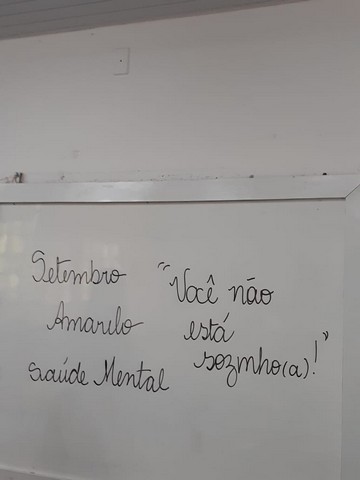 Setembro
Amarelo
Saúde Mental
"Você não
está
sozinho(a)!"